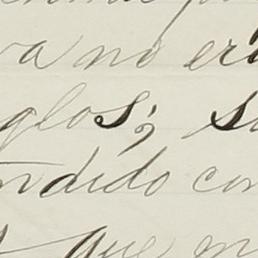 va no er
glos; s
ndido con
que m